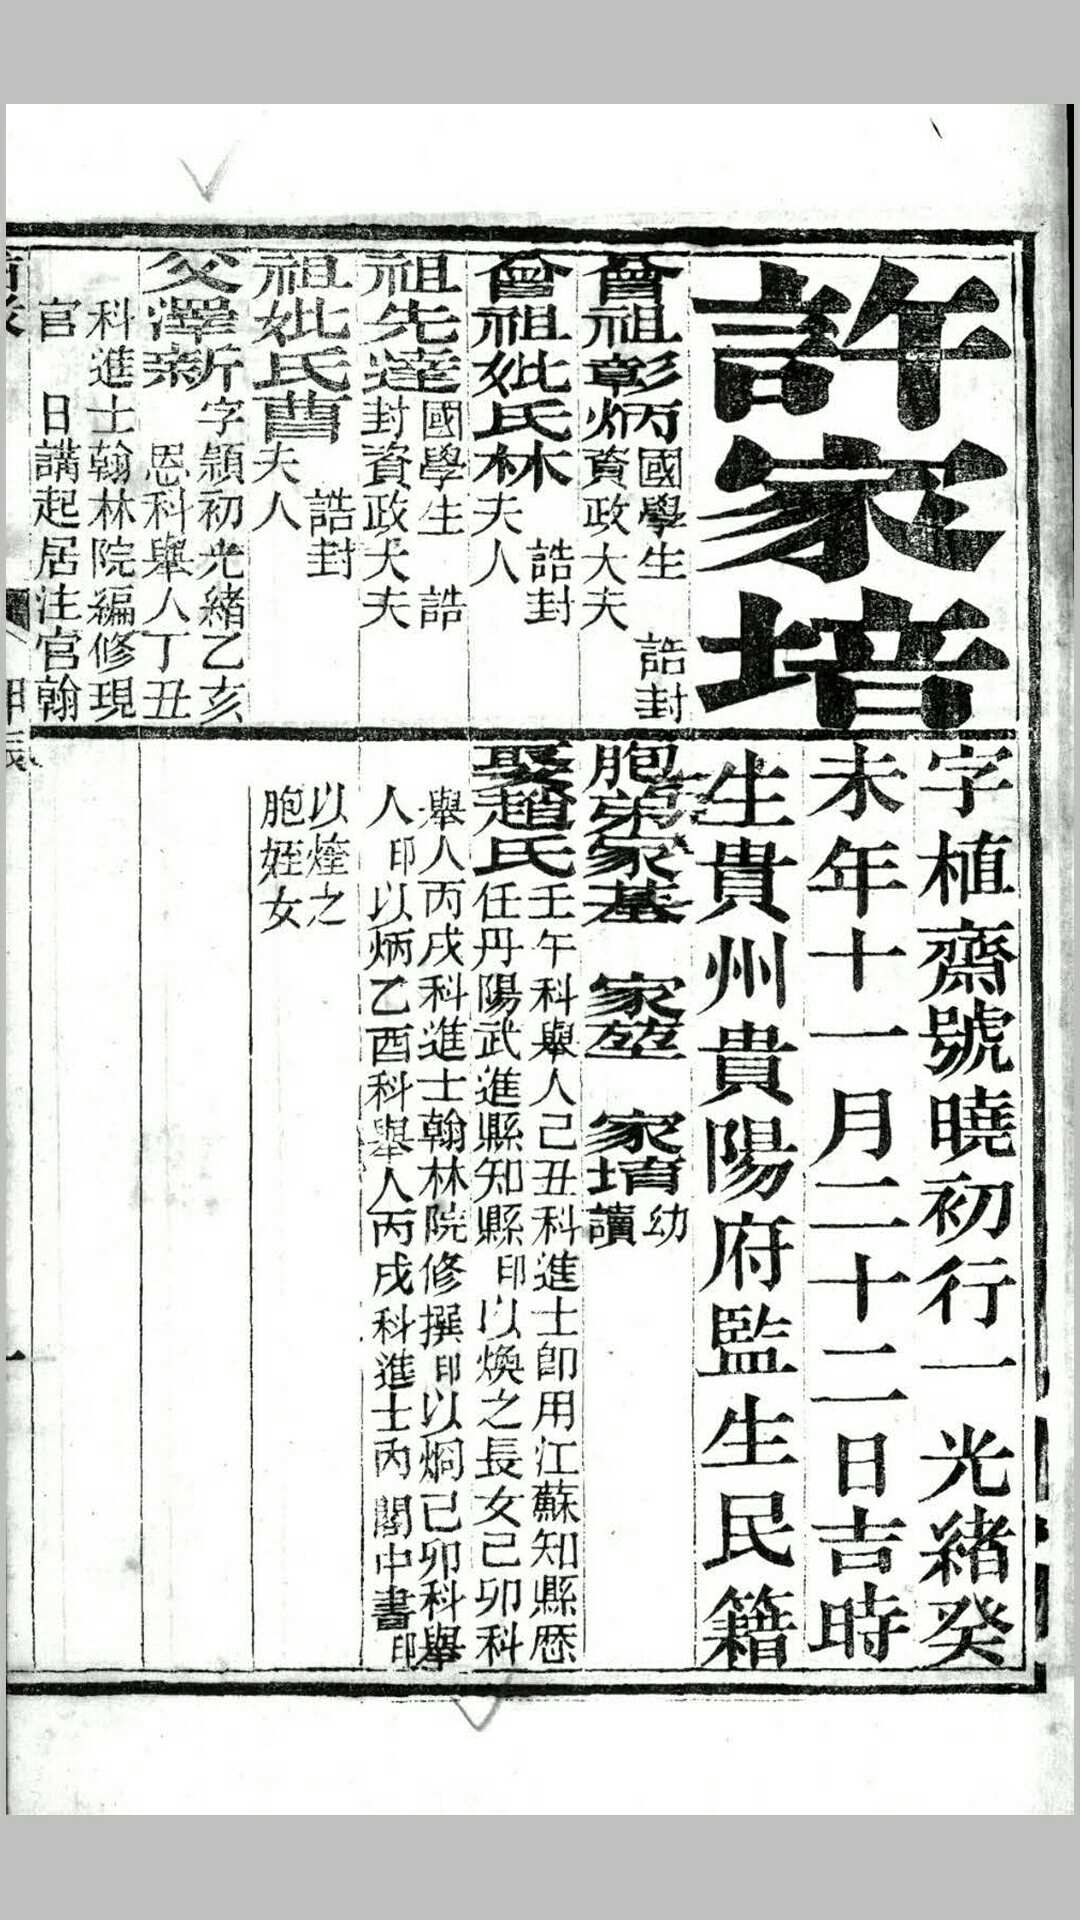 許家培
字植齋號曉初行一光緒癸
未年十一月二十二日吉時
生貴州貴陽府監生民籍
曾祖彰炳國學生 誥封
資政大夫
曾祖妣氏林 誥封
夫人
祖先達國學生 誥
封資政大夫
祖妣氏曹 誥封
夫人
父澤新字頴初光緒乙亥
恩科舉人丁丑
科進士翰林院編修現
官 日講起居注官翰
胞弟家基 家堃 家堉幼
讀
娶趙氏壬午科舉人己丑科進士即用江蘇知縣歷
任丹陽武進縣知縣印以煥之長女己卯科
舉人丙戌科進士翰林院修撰印以炯己卯科舉
人印以炳乙酉科舉人丙戌科進士內閣中書印
以煃之
胞姪女